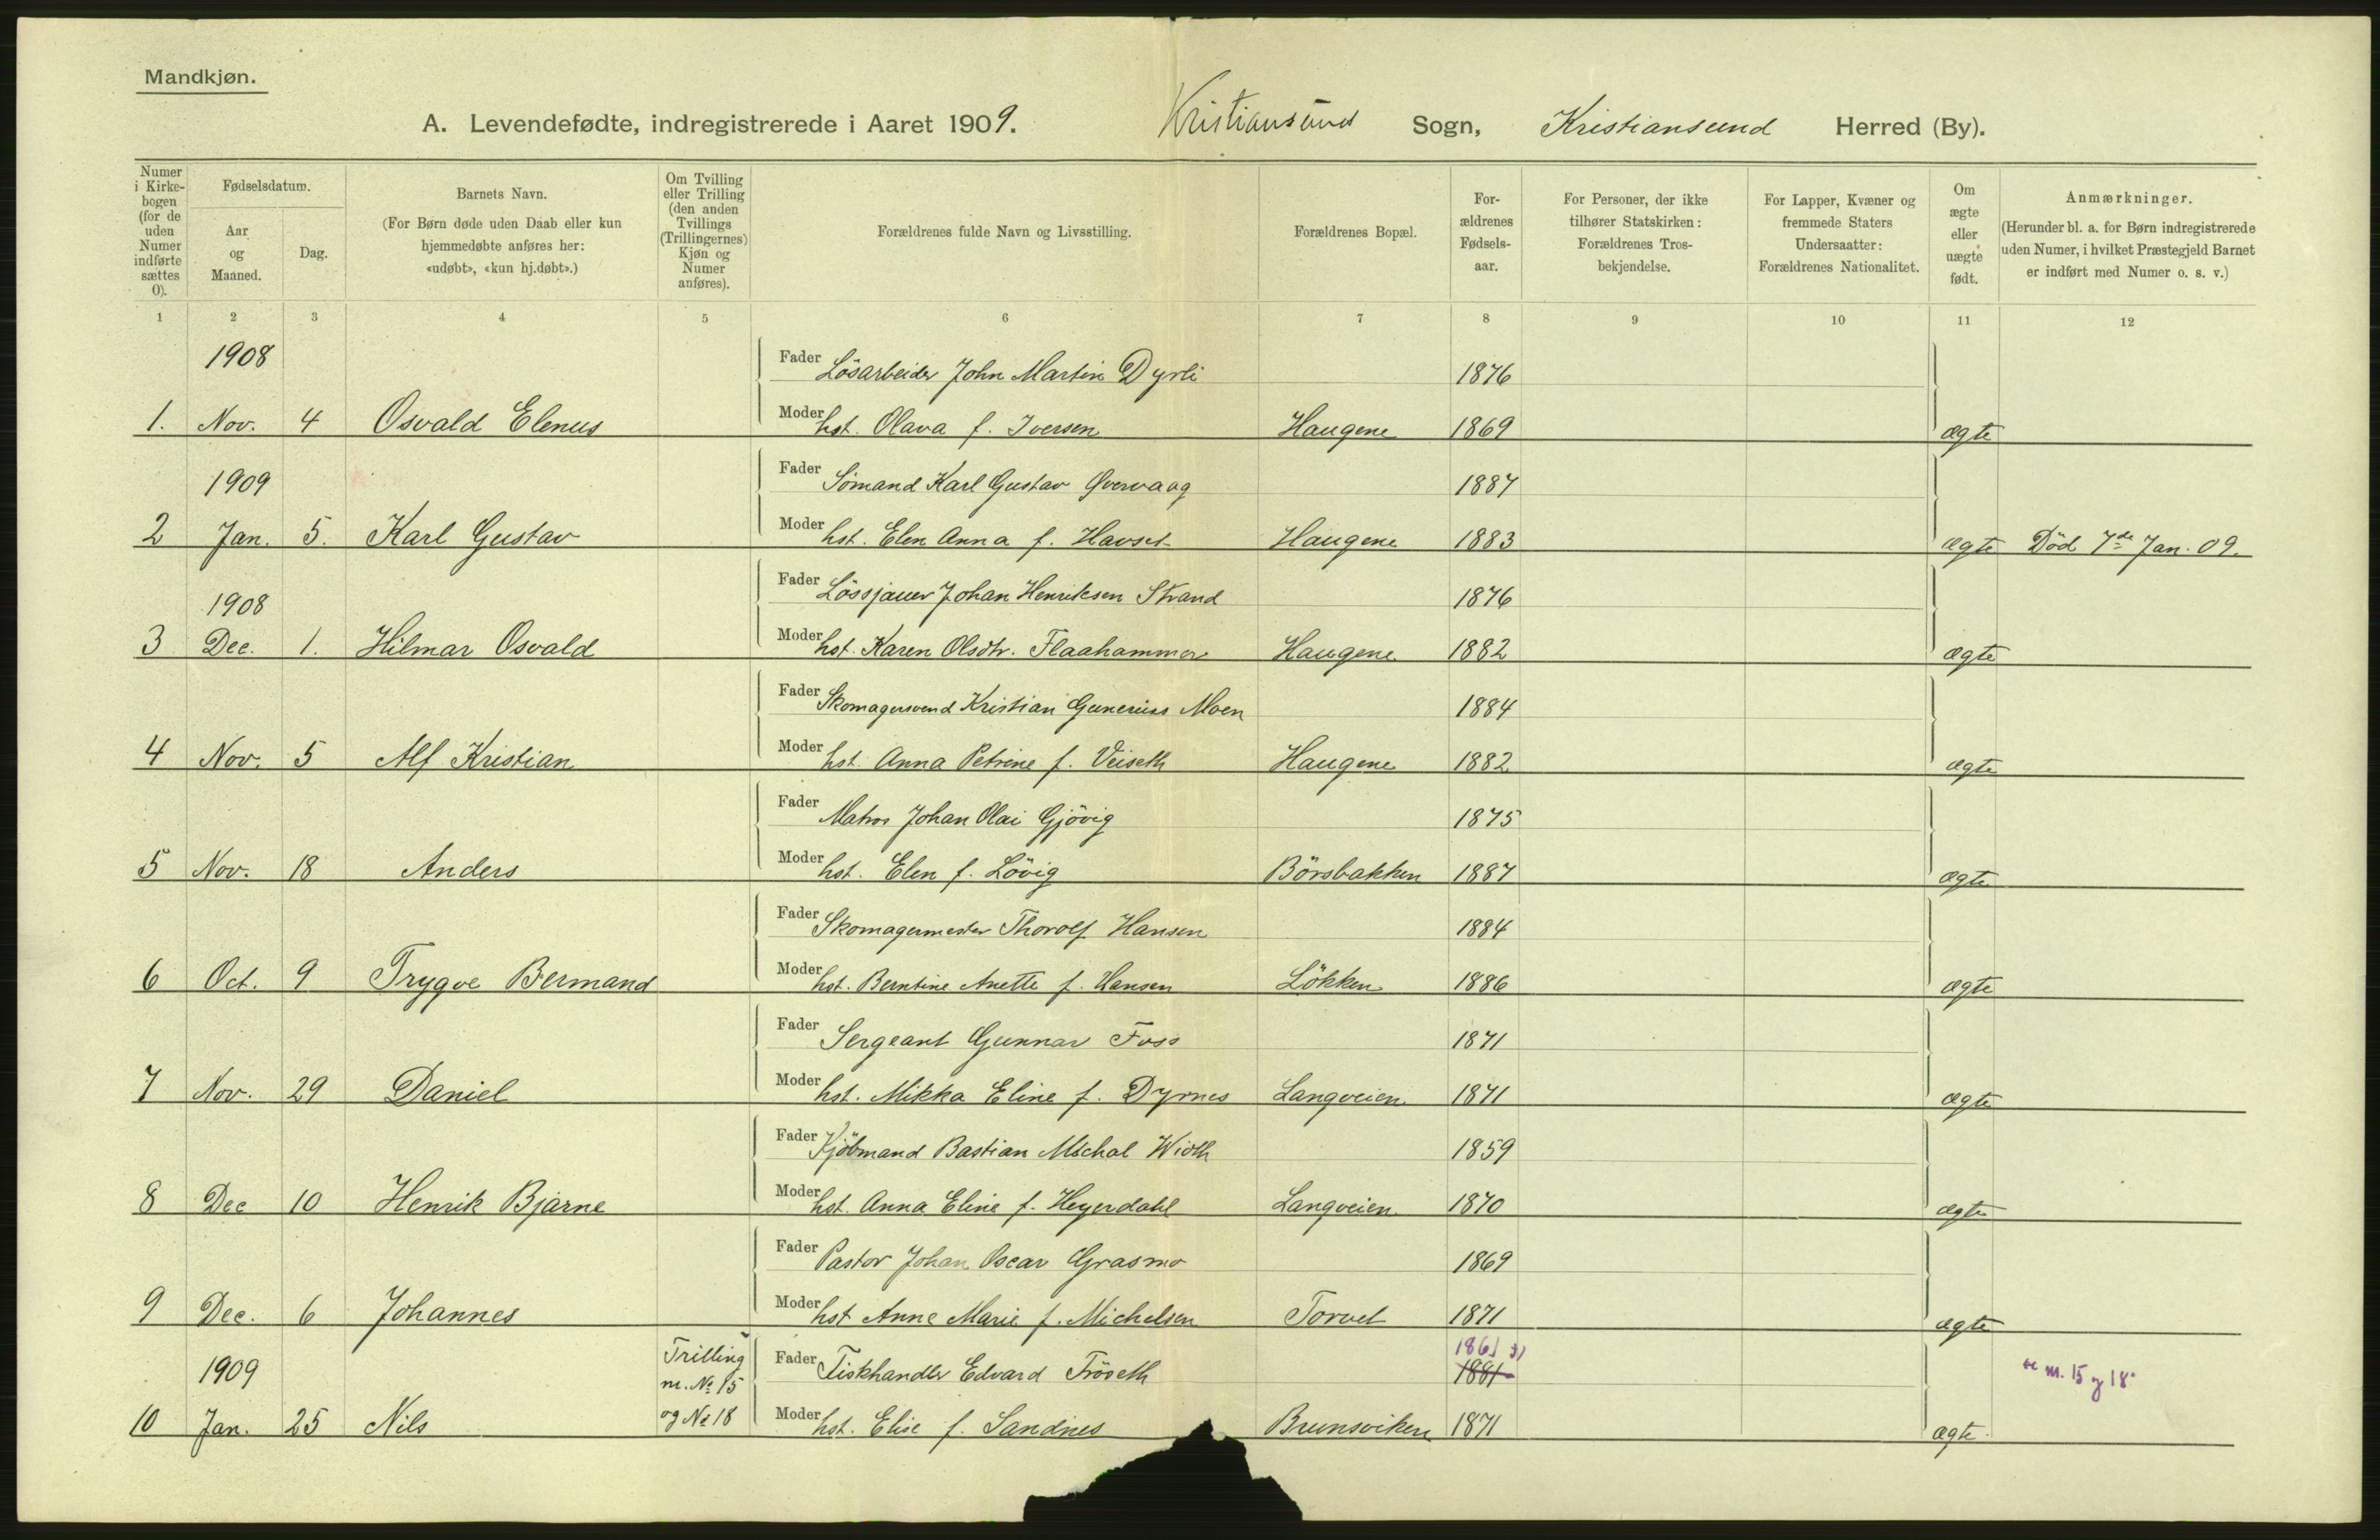 Mandkjøn.
A. Levendefødte, indregistrerede i Aaret 1909. Kristiansund Sogn, Kristiansund Herred (By).
Numer i Kirkebogen (for de uden Numer indførte sættes 0).
Fødselsdatum.
Aar og Maaned.
Dag.
Barnets Navn.
(For Børn døde uden Daab eller kun hjemmedøbte anføres her: «udøbt», «kun hj.døbt».)
Om Tvilling eller Trilling (den anden Tvillings (Trillingernes) Kjøn og Numer anføres).
Forældrenes fulde Navn og Livsstilling.
Forældrenes Bopæl.
Forældrenes Fødselsaar.
For Personer, der ikke tilhører Statskirken: Forældrenes Trosbekjendelse.
For Lapper, Kvæner og fremmede Staters Undersaatter: Forældrenes Nationalitet.
Om ægte eller uægte født.
Anmærkninger.
(Herunder bl. a. for Børn indregistrerede uden Numer, i hvilket Præstegjeld Barnet er indført med Numer o. s. v.)
1 2 3 4 5 6 7 8 9 10 11 12
1908 Fader Lösarbeider John Martin Dyrli 1876
1. Nov. 4 Osvald Elenus Moder hst. Olava f. Iversen Haugene 1869 ægte
1909 Fader Sömand Karl Gustav Qvervaag 1887
2 Jan. 5. Karl Gustav Moder hst. Elen Anna f. Havset Haugene 1883 ægte Död 7de Jan. 09.
1908 Fader Lössjauer Johan Henriksen Strand 1876
3 Dec. 1. Hilmar Osvald Moder hst. Karen Olsdtr. Flaahammer Haugene 1882 ægte
Fader Skomagersvend Kristian Gunerius Moen 1884
4 Nov. 5 Alf Kristian Moder hst. Anna Petrine f. Veiseth Haugene 1882 ægte
Fader Matros Johan Olai Gjövig 1875
5 Nov. 18 Anders Moder hst. Elen f. Lövig Börsbakken 1887 ægte
Fader Skomagermester Thorolf Hansen 1884
6 Oct. 9 Trygve Bermand Moder hst. Berntine Anette f. Hansen Lökken 1886 ægte
Fader Sergeant Gunnar Foss 1871
7 Nov. 29 Daniel Moder hst. Mikka Eline f. Dyrnes Langveien 1871 ægte
Fader Kjöbmand Bastian Michal Wioth 1859
8 Dec 10 Henrik Bjarne Moder hst. Anna Eline f. Heyerdahl Langveien 1870 ægte
Fader Pastor Johan Oscar Grasmo 1869
9 Dec. 6 Johannes Moder hst Anne Marie f. Michelsen Torvet 1871 ægte
1861
1909 Trilling m. No 15 Fader Fiskhandler Edvard Fröseth 1881 m. 15 og 18
10 Jan. 25 Nils og No 18 Moder hst. Elise f. Sandnes Brunsviken 1871 ægte